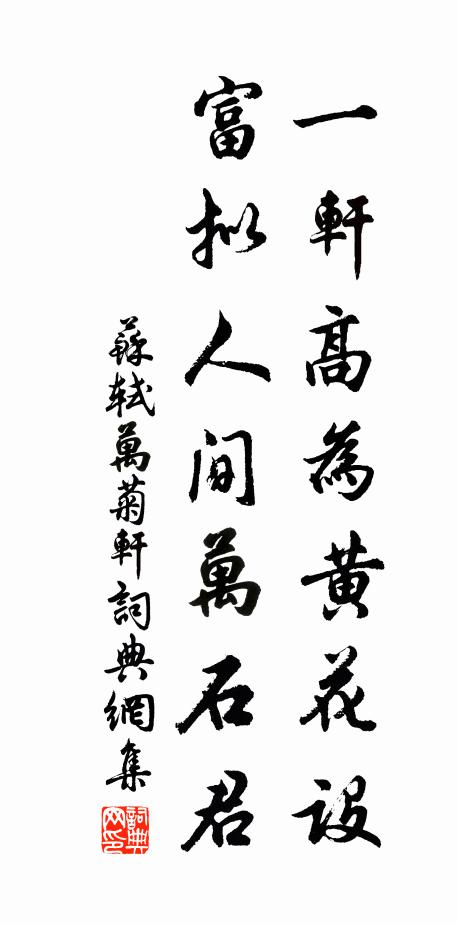 一軒高為黄花設
富拟人间萬石君
蘇軾萬菊軒詞典網集
詞典网印